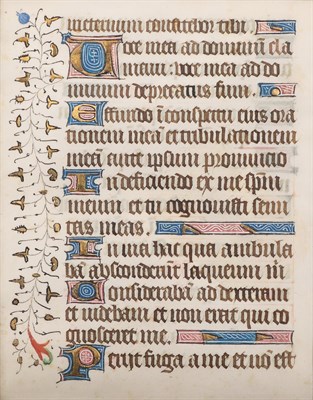 in eternum confitebor tibi.
Voce mea ad dominũ cla
mavi: voce mea ad do
minum deprecatus sum.
Effundo ĩ conspectu eius ora
tionem meã et tribulationem
meã ante ipsum pronuncio
In deficiendo ex me spiri
tum meum et tu cognovisti semi
tas meas.
In via hac qua ambula
bã absconderũt laqueum m̃
Considerabã ad dexteram
et videbam et non erat qui co
gnosceret me.
Perijt fuga a me et nõ est